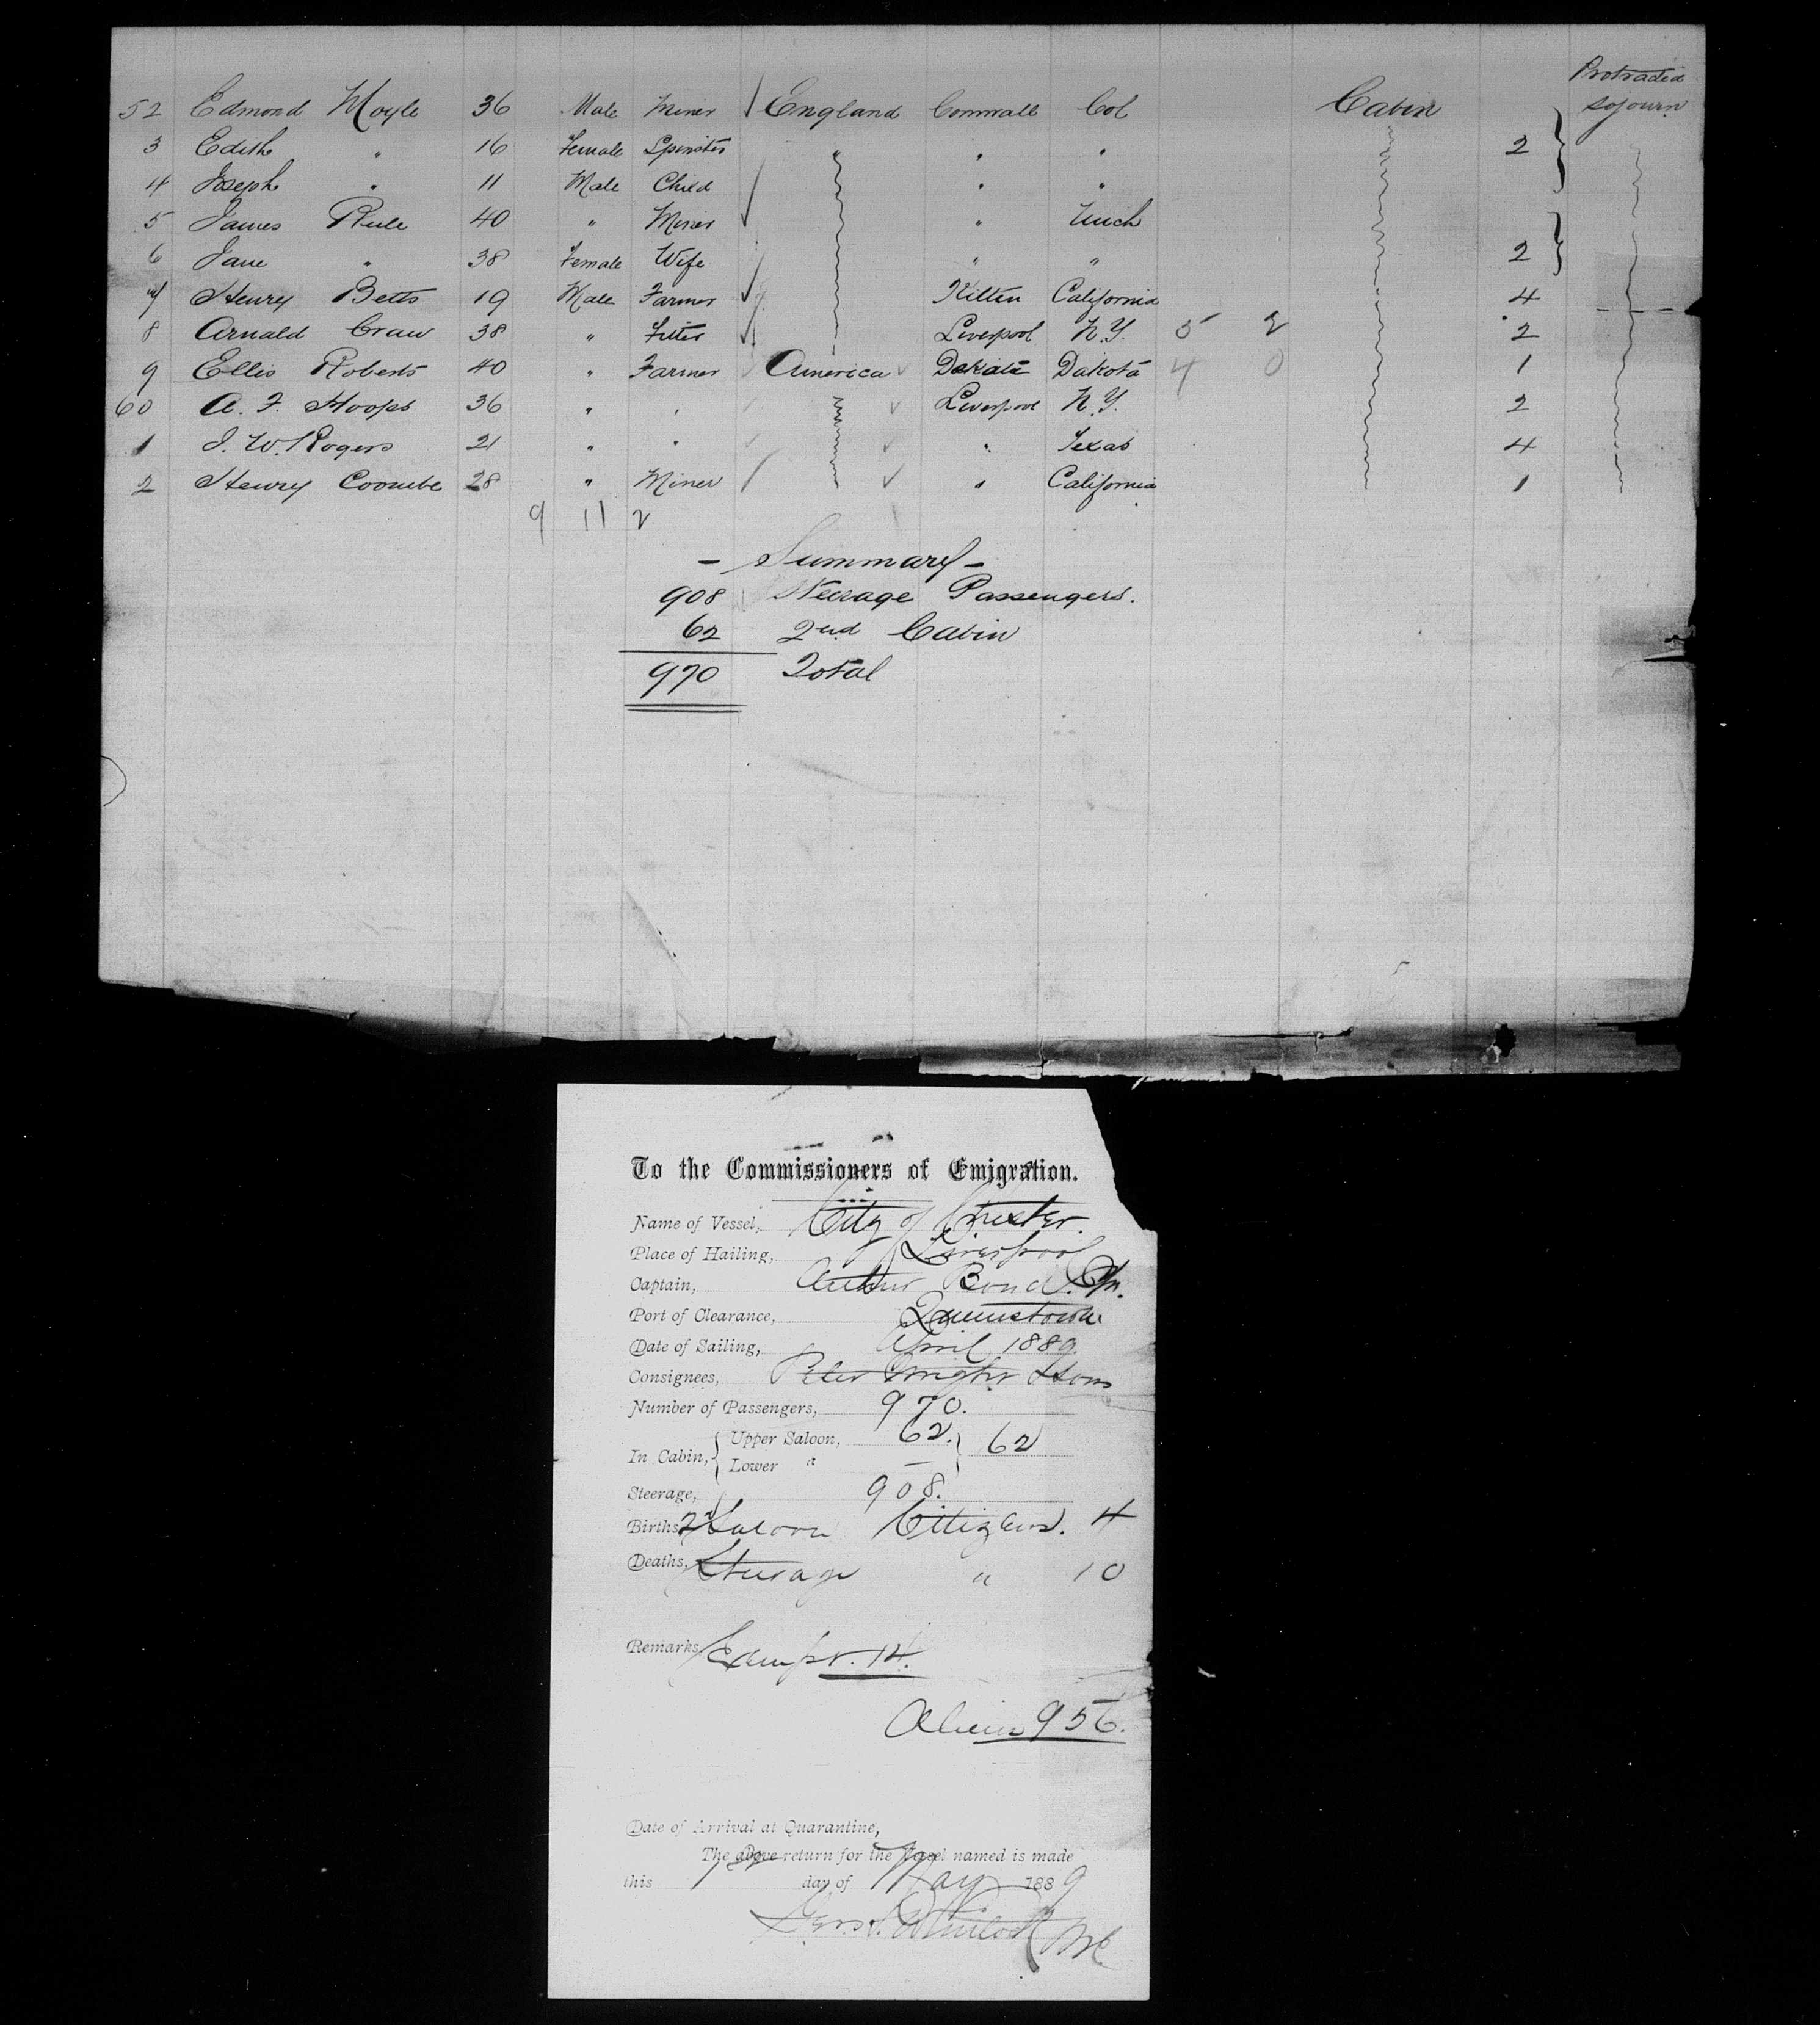 Protraded
52 Edmond Moyle 36 Male Miner England Cornwall Col Cabin sojourn
3 Edith " 16 Female Spinster " " " 2
4 Joseph " 11 Male Child " "
5 James Rule 40 " Miner " Mich
6 Jane " 38 Female Wife " " 2
7 Henry Betts 19 Male Farmer Kilten California 4
8 Arnald Craw 38 " Fitter Liverpool N.Y. 5 2 2
9 Ellis Roberts 40 " Farmer America Dakota Dakota 4 0 1
60 A. F. Hoops 36 " " Liverpool N.Y. 2
1 J. W. Rogers 21 " " " Texas 4
2 Henry Coombe 28 " Miner " California 1
9 11 2
- Summary -
908 Steerage Passengers.
62 2nd Cabin
970 Total
To the Commissioners of Emigration.
Name of Vessel, City of Chester.
Place of Hailing, Liverpool
Captain, Arthur Bond
Port of Clearance, Queenstown
Date of Sailing, April 1889.
Consignees, Peter Wright & Sons
Number of Passengers, 970.
In Cabin, { Upper Saloon, 62. } 62
Lower " —
Steerage, 908.
Births, 2d Saloon Citizens. 4
Deaths, Steerage " 10
Remarks, Exempt. 14.
Aliens 956.
Date of Arrival at Quarantine,
The above return for the Vessel named is made
this 1st day of May 1889